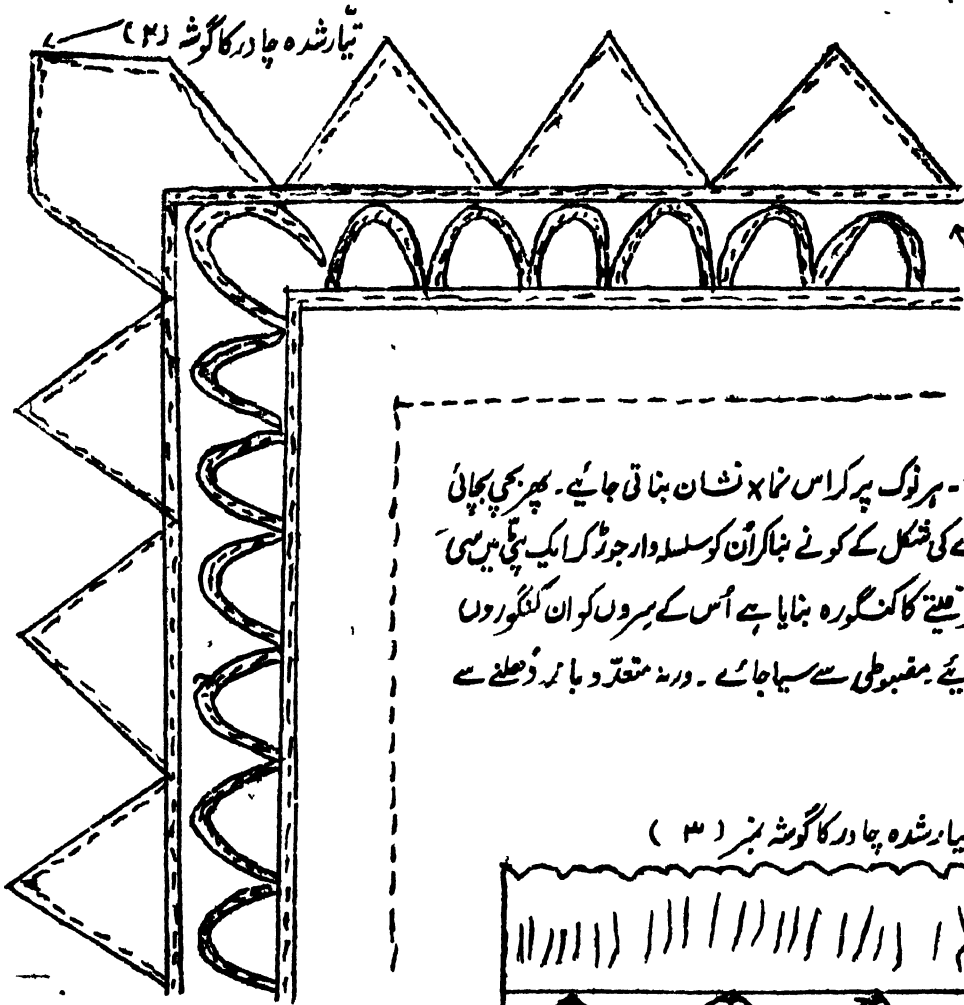 تیّار شدہ چادر کا گوشہ (۲)
۔ ہر نوک پر کراس نما x نشان بناتی جائیے۔ پھر بچی بچائی
کی شکل کے کونے بنا کر اُن کو سلسلہ وار جوڑ کر ایک پٹّی میں سی
فیتے کا کنگورہ بنایا ہے اُس کے سِروں کو ان کنگوروں
مضبوطی سے سیا جائے ۔ ورنہ متعدّد بار دُھلنے سے
شدہ چادر کا گوشہ نمبر (۳)